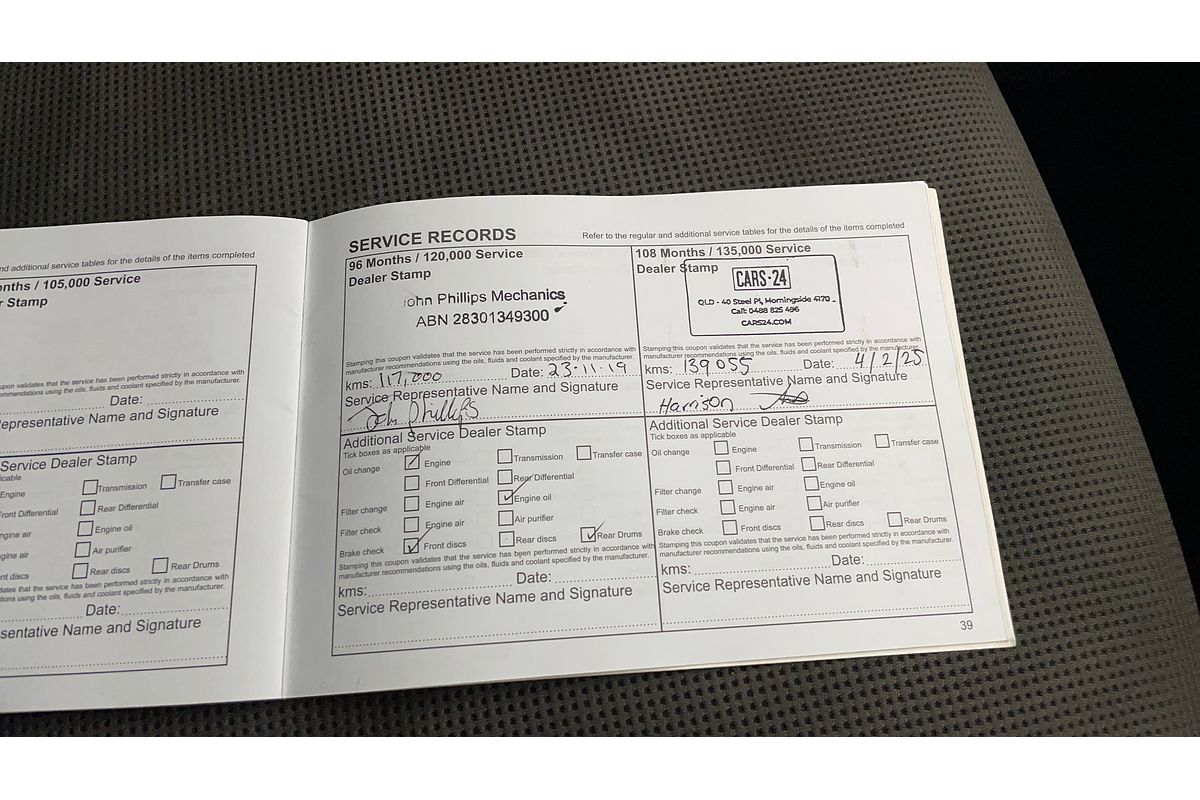 nd additional service tables for the details of the items completed
onths / 105,000 Service
r Stamp
upon validates that the service has been performed strictly in accordance with
mmendations using the oils, fluids and coolant specified by the manufacturer.
Date:
epresentative Name and Signature
Service Dealer Stamp
icable
Engine Transmission Transfer case
Front Differential Rear Differential
ngine air Engine oil
ngine air Air purifier
nt discs Rear discs Rear Drums
dates that the service has been performed strictly in accordance with
tions using the oils, fluids and coolant specified by the manufacturer.
Date:
sentative Name and Signature
SERVICE RECORDS
Refer to the regular and additional service tables for the details of the items completed
96 Months / 120,000 Service
Dealer Stamp
John Phillips Mechanics
ABN 28301349300
Stamping this coupon validates that the service has been performed strictly in accordance with
manufacturer recommendations using the oils, fluids and coolant specified by the manufacturer.
kms: 117,000 Date: 23-11-19
Service Representative Name and Signature
John Phillips
Additional Service Dealer Stamp
Tick boxes as applicable
Oil change Engine Transmission Transfer case
Front Differential Rear Differential
Filter change Engine air Engine oil
Filter check Engine air Air purifier
Brake check Front discs Rear discs Rear Drums
Stamping this coupon validates that the service has been performed strictly in accordance with
manufacturer recommendations using the oils, fluids and coolant specified by the manufacturer.
kms: Date:
Service Representative Name and Signature
108 Months / 135,000 Service
Dealer Stamp
CARS-24
QLD - 40 Steel Pl, Morningside 4170
Call: 0488 825 496
CARS24.COM
Stamping this coupon validates that the service has been performed strictly in accordance with
manufacturer recommendations using the oils, fluids and coolant specified by the manufacturer.
kms: 139055 Date: 4/2/25
Service Representative Name and Signature
Harrison
Additional Service Dealer Stamp
Tick boxes as applicable
Oil change Engine Transmission Transfer case
Front Differential Rear Differential
Filter change Engine air Engine oil
Filter check Engine air Air purifier
Brake check Front discs Rear discs Rear Drums
Stamping this coupon validates that the service has been performed strictly in accordance with
manufacturer recommendations using the oils, fluids and coolant specified by the manufacturer.
kms: Date:
Service Representative Name and Signature
39